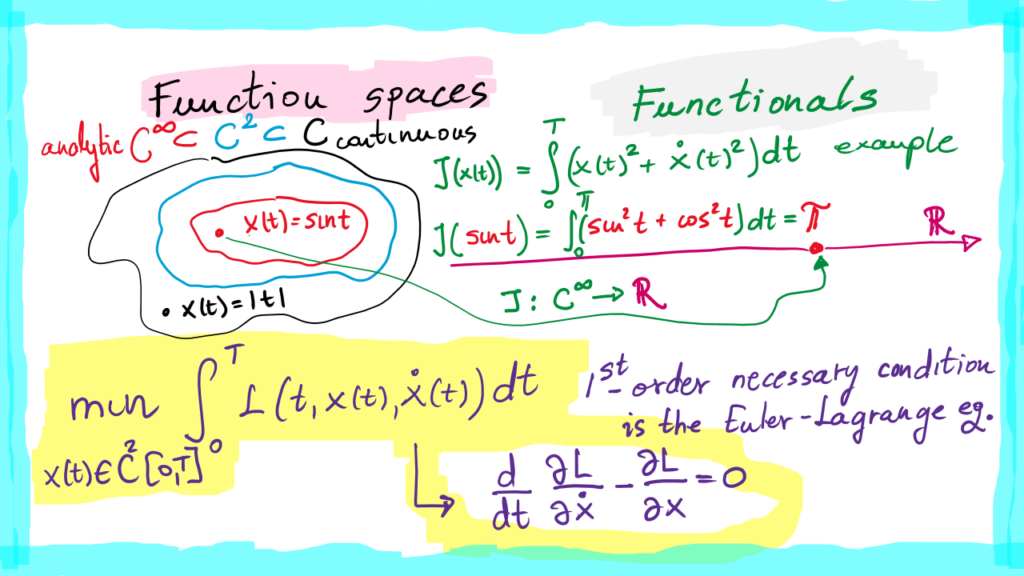 Function spaces
analytic C^∞ ⊂ C² ⊂ C continuous
x(t) = sint
• x(t) = |t|
Functionals
J(x(t)) = ∫₀ᵀ (x(t)² + ẋ(t)²) dt example
J(sint) = ∫₀^π (sin²t + cos²t) dt = π
ℝ
J : C^∞ → ℝ
min ∫₀ᵀ L(t, x(t), ẋ(t)) dt
x(t) ∈ C²[0,T]
1st-order necessary condition
is the Euler-Lagrange eq.
d/dt ∂L/∂ẋ - ∂L/∂x = 0